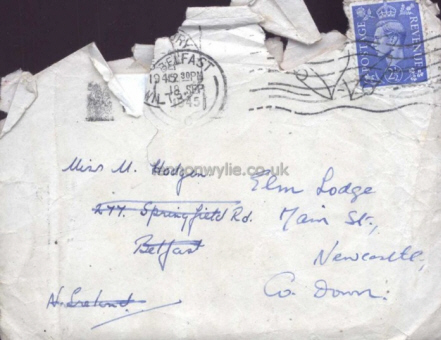 BELFAST
18 SEP
45
POSTAGE REVENUE
wylie.co.uk
Miss M. Hodgen
277. Springfield Rd.
Belfast
N. Ireland
Elm Lodge
Main St.,
Newcastle,
Co. Down.